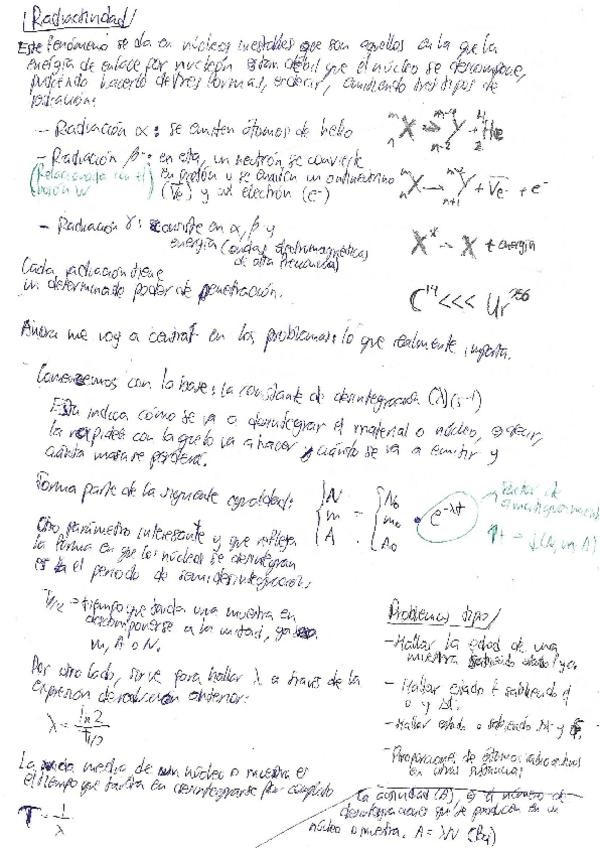 Radiactividad
Este fenómeno se da en núcleos inestables que son aquellos en la que la
energía de enlace por nucleón es tan débil que el núcleo se descompone,
pudiendo hacerlo de tres formas, es decir, emitiendo tres tipos de
radiación:
- Radiación α: se emiten átomos de helio
m n X → m-4 n-2 Y + 4 2 He
- Radiación β⁻: en esta, un neutrón se convierte
(Relacionada con el bosón W)
en protón y se emiten un antineutrino
(ν̅e) y un electrón (e⁻)
m n X → m n+1 Y + ν̅e + e⁻
- Radiación γ: consiste en α, β y
energía (ondas electromagnéticas
de alta frecuencia)
X* → X + energía
Cada radiación tiene
un determinado poder de penetración.
C¹⁴ <<< Ur
Ahora me voy a centrar en los problemas: lo que realmente importa.
Comencemos con la base: la constante de desintegración (λ)(s⁻¹)
Esta indica cómo se va a desintegrar el material o núcleo, es decir,
la rapidez con la que lo va a hacer y cuánto se va a emitir y
cuánta masa se perderá.
Forma parte de la siguiente igualdad:
{ N m A = { N₀ m₀ A₀ · e^-λt
Factor de
Otro parámetro interesante y que refleja
la forma en que los núcleos se desintegran
es el periodo de semidesintegración:
T1/2 = tiempo que tarda una muestra en
descomponerse a la mitad, ya sea
m, A o N.
Por otro lado, sirve para hallar λ a través de la
expresión anterior:
λ = ln 2 / T1/2
La vida media de un núcleo o muestra es
el tiempo que tarda en desintegrarse por completo
τ = 1/λ
Problemas tipo
- Hallar la edad de una
muestra
- Hallar estado t sabiendo
- Hallar estado o sabiendo
- Proporciones de átomos radioactivos
en otras sustancias
La actividad (A), es el número de
desintegraciones que se producen en un
núcleo o muestra. A = λN (Bq)